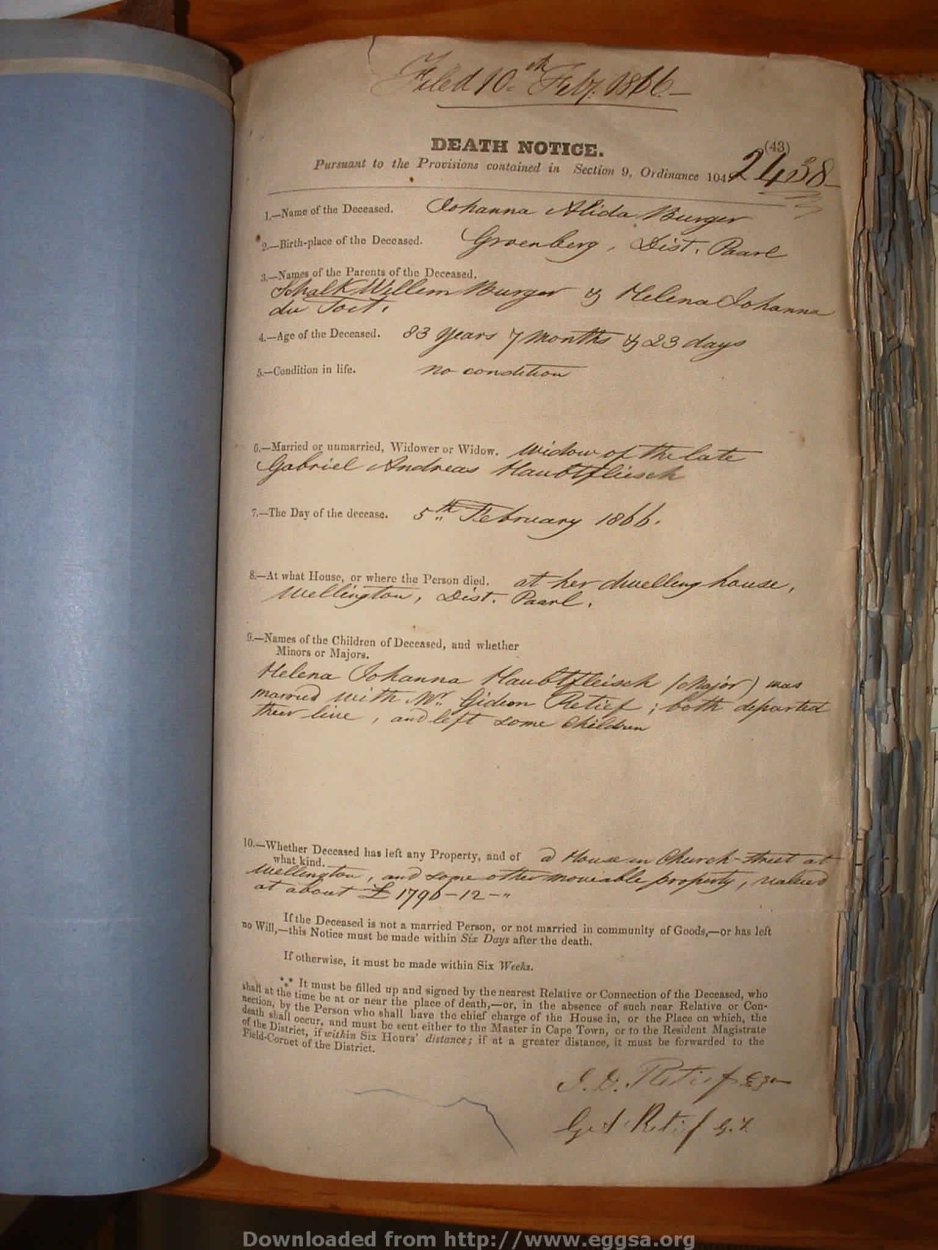 Filed 10th Feby. 1866.
DEATH NOTICE.
(43)
Pursuant to the Provisions contained in Section 9, Ordinance 104
2438
1.—Name of the Deceased. Johanna Alida Burger
2.—Birth-place of the Deceased. Groenberg, Dist. Paarl
3.—Names of the Parents of the Deceased.
Schalk Willem Burger & Helena Johanna
du Toit.
4.—Age of the Deceased. 83 years 7 months & 23 days
5.—Condition in life. no condition
6.—Married or unmarried, Widower or Widow. Widow of the late
Gabriel Andreas Haubtfleisch
7.—The Day of the decease. 5th February 1866.
8.—At what House, or where the Person died. at her dwelling house,
Wellington, Dist. Paarl.
9.—Names of the Children of Deceased, and whether
Minors or Majors.
Helena Johanna Haubtfleisch (Major) was
married with Mr. Gideon Retief; both departed
their live, and left some children
10.—Whether Deceased has left any Property, and of a House in Church-street at
what kind.
Wellington, and some other moveable property, valued
at about £ 1796-12-"
If the Deceased is not a married Person, or not married in community of Goods,—or has left
no Will,—this Notice must be made within Six Days after the death.
If otherwise, it must be made within Six Weeks.
*** It must be filled up and signed by the nearest Relative or Connection of the Deceased, who
shall at the time be at or near the place of death,—or, in the absence of such near Relative or Con-
nection, by the Person who shall have the chief charge of the House in, or the Place on which, the
death shall occur, and must be sent either to the Master in Cape Town, or to the Resident Magistrate
of the District, if within Six Hours' distance; if at a greater distance, it must be forwarded to the
Field-Cornet of the District.
Retief
Retief
Downloaded from http://www.eggsa.org